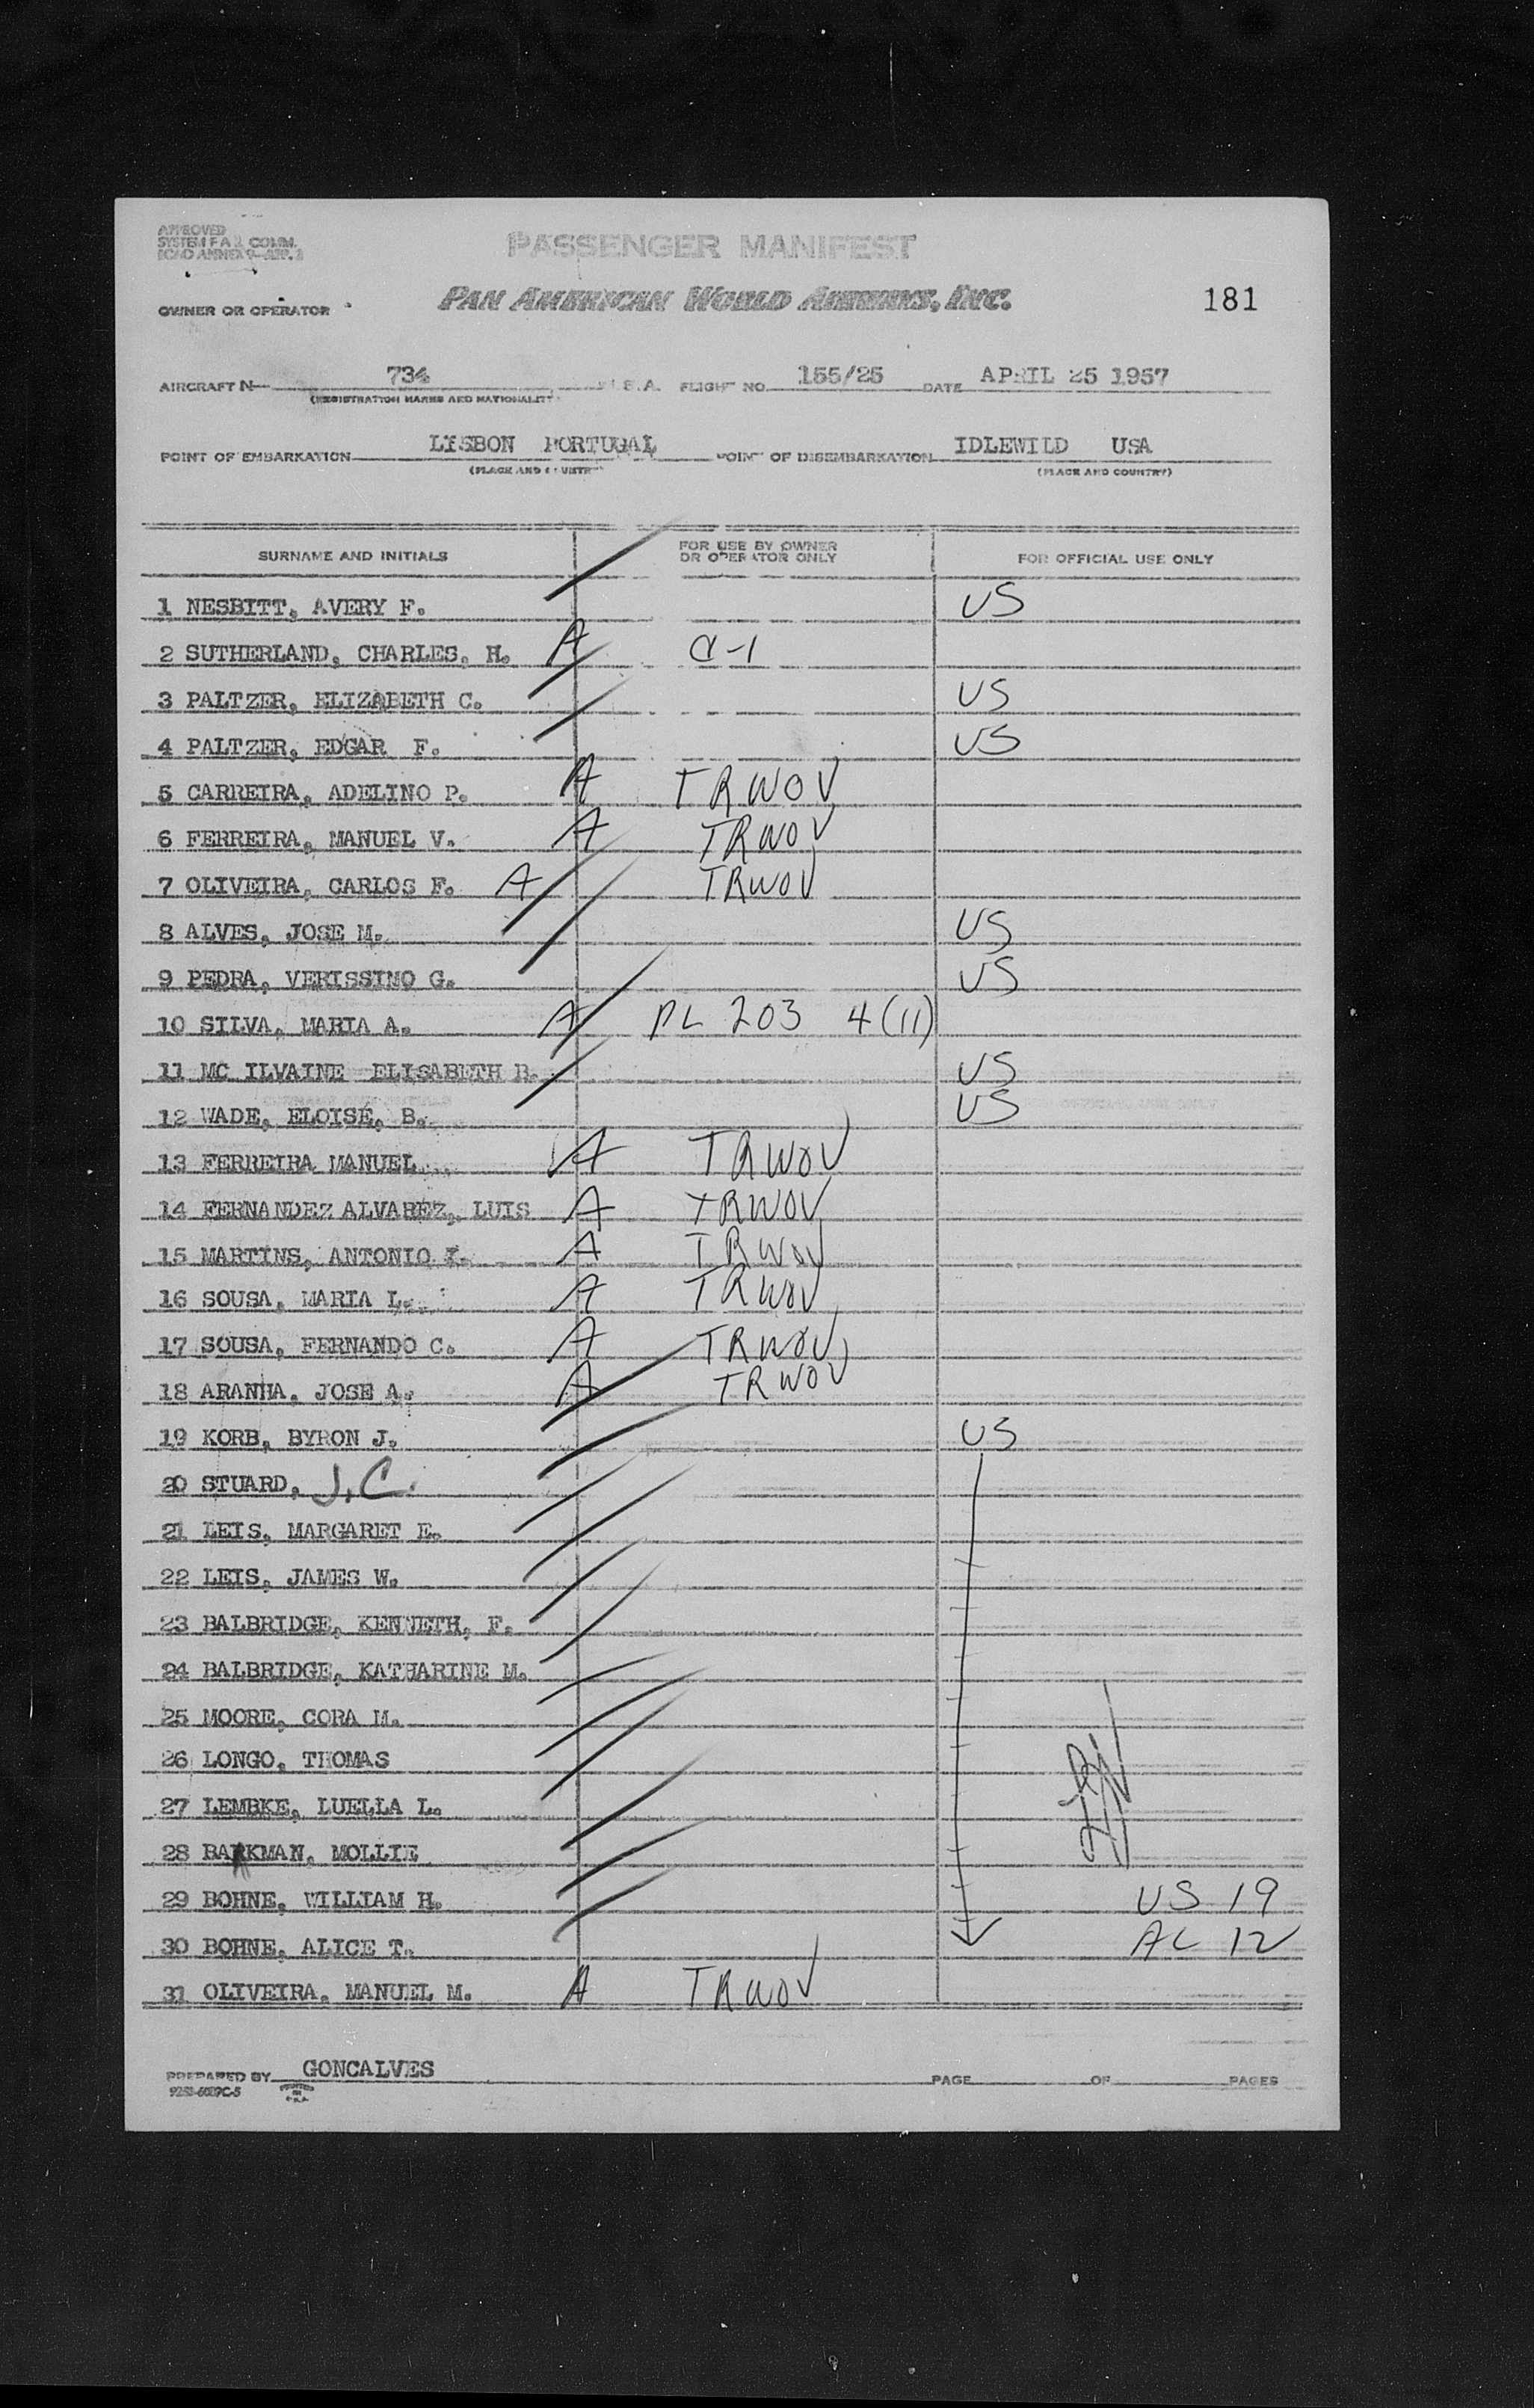 APPROVED
SYSTEM F A L COMM.
ICAO ANNEX 9—APP. 3
PASSENGER MANIFEST
OWNER OR OPERATOR PAN AMERICAN WORLD AIRWAYS, INC. 181
AIRCRAFT N— 734 U.S.A. FLIGHT NO. 155/25 DATE APRIL 25 1957
(REGISTRATION MARKS AND NATIONALITY)
POINT OF EMBARKATION LISBON PORTUGAL POINT OF DISEMBARKATION IDLEWILD USA
(PLACE AND COUNTRY) (PLACE AND COUNTRY)
SURNAME AND INITIALS FOR USE BY OWNER OR OPERATOR ONLY FOR OFFICIAL USE ONLY
1 NESBITT, AVERY F. US
2 SUTHERLAND, CHARLES, H. A C-1
3 PALTZER, ELIZABETH C. US
4 PALTZER, EDGAR F. US
5 CARREIRA, ADELINO P. A TRWOV
6 FERREIRA, MANUEL V. A TRWOV
7 OLIVEIRA, CARLOS F. A TRWOV
8 ALVES, JOSE M. US
9 PEDRA, VERISSIMO G. US
10 SILVA, MARIA A. A PL 203 4(11)
11 MC ILVAINE ELISABETH B. US
12 WADE, ELOISE, B. US
13 FERREIRA MANUEL A TRWOV
14 FERNANDEZ ALVAREZ, LUIS A TRWOV
15 MARTINS, ANTONIO A TRWOV
16 SOUSA, MARIA L. A TRWOV
17 SOUSA, FERNANDO C. A TRWOV
18 ARANHA, JOSE A. A TRWOV
19 KORB, BYRON J. US
20 STUARD, J.C.
21 LEIS, MARGARET E.
22 LEIS, JAMES W.
23 BALBRIDGE, KENNETH, F.
24 BALBRIDGE, KATHARINE M.
25 MOORE, CORA M.
26 LONGO, THOMAS
27 LEMBKE, LUELLA L.
28 BARKMAN, MOLLIE
29 BOHNE, WILLIAM H. US 19
30 BOHNE, ALICE T. AL 12
31 OLIVEIRA, MANUEL M. A TRWOV
PREPARED BY GONCALVES PAGE OF PAGES